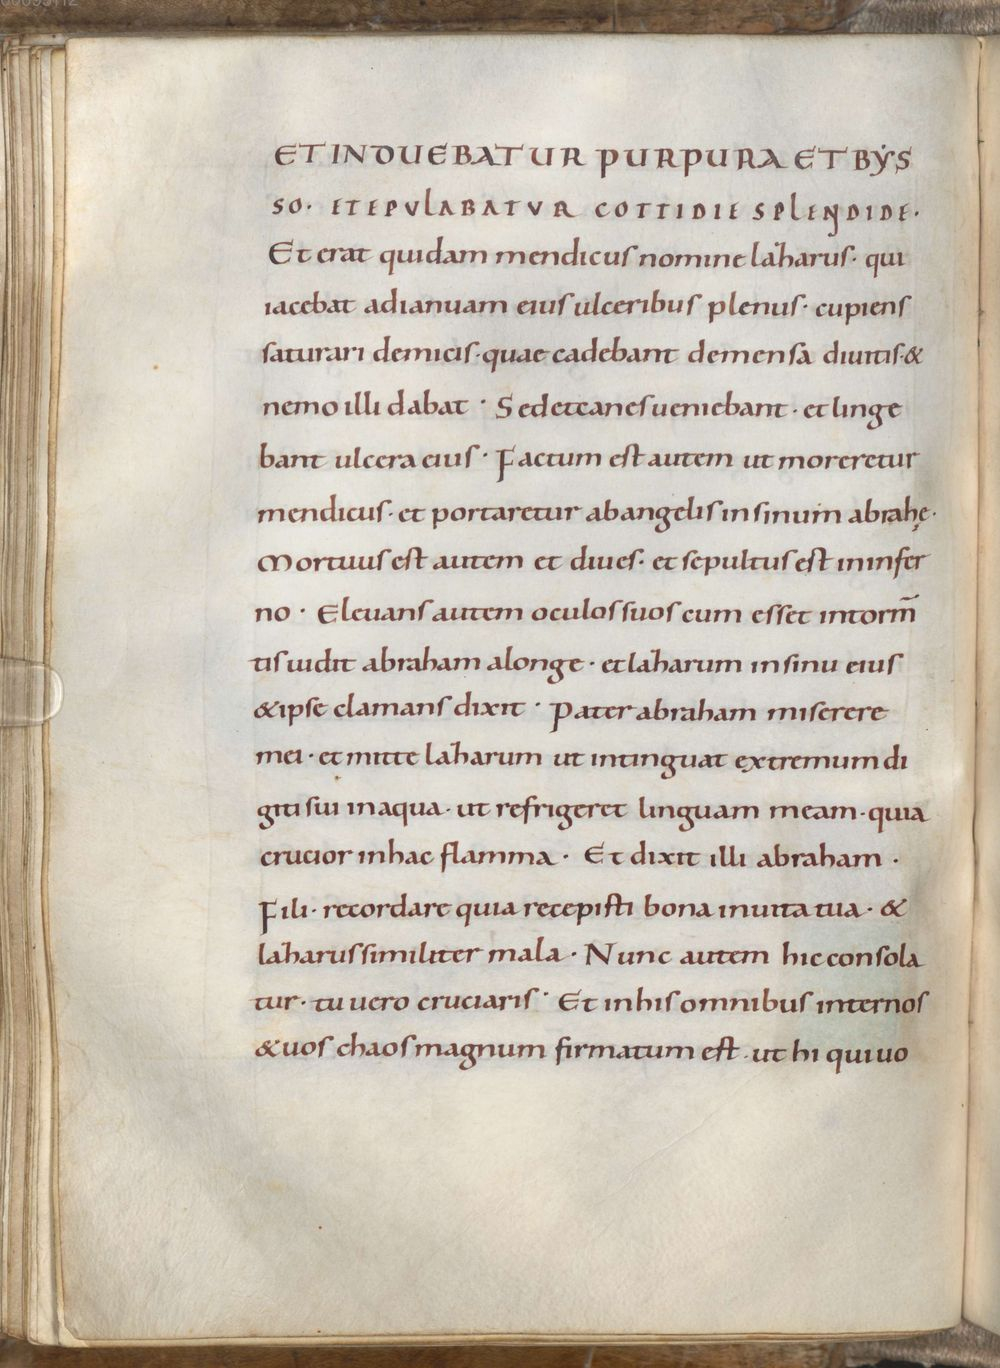 ET INDUEBATUR PURPURA ET BẎS
SO· ET EPULABATUR COTTIDIE SPLENDIDE·
Et erat quidam mendicus nomine laharus· qui
iacebat ad ianuam eius ulceribus plenus· cupiens
saturari de micis· quae cadebant de mensa diuitis· &
nemo illi dabat · Sed et canes ueniebant · et linge
bant ulcera eius · Factum est autem ut moreretur
mendicus · et portaretur ab angelis in sinum abrahę·
Mortuus est autem et diues· et sepultus est in infer
no · Eleuans autem oculos suos cum esset in torm̅
tis uidit abraham a longe · et laharum in sinu eius
& ipse clamans dixit · Pater abraham miserere
mei · et mitte laharum ut intinguat extremum di
giti sui in aqua · ut refrigeret linguam meam · quia
crucior in hac flamma · Et dixit illi abraham ·
Fili · recordare quia recepisti bona in uita tua · &
laharus similiter mala · Nunc autem hic consola
tur · tu uero cruciaris · Et in his omnibus inter nos
& uos chaos magnum firmatum est · ut hi qui uo